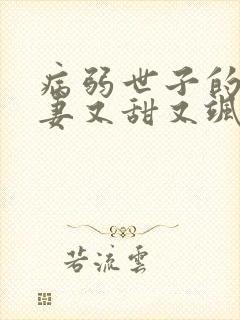 病弱世子的
妻又甜又飒
若流雲